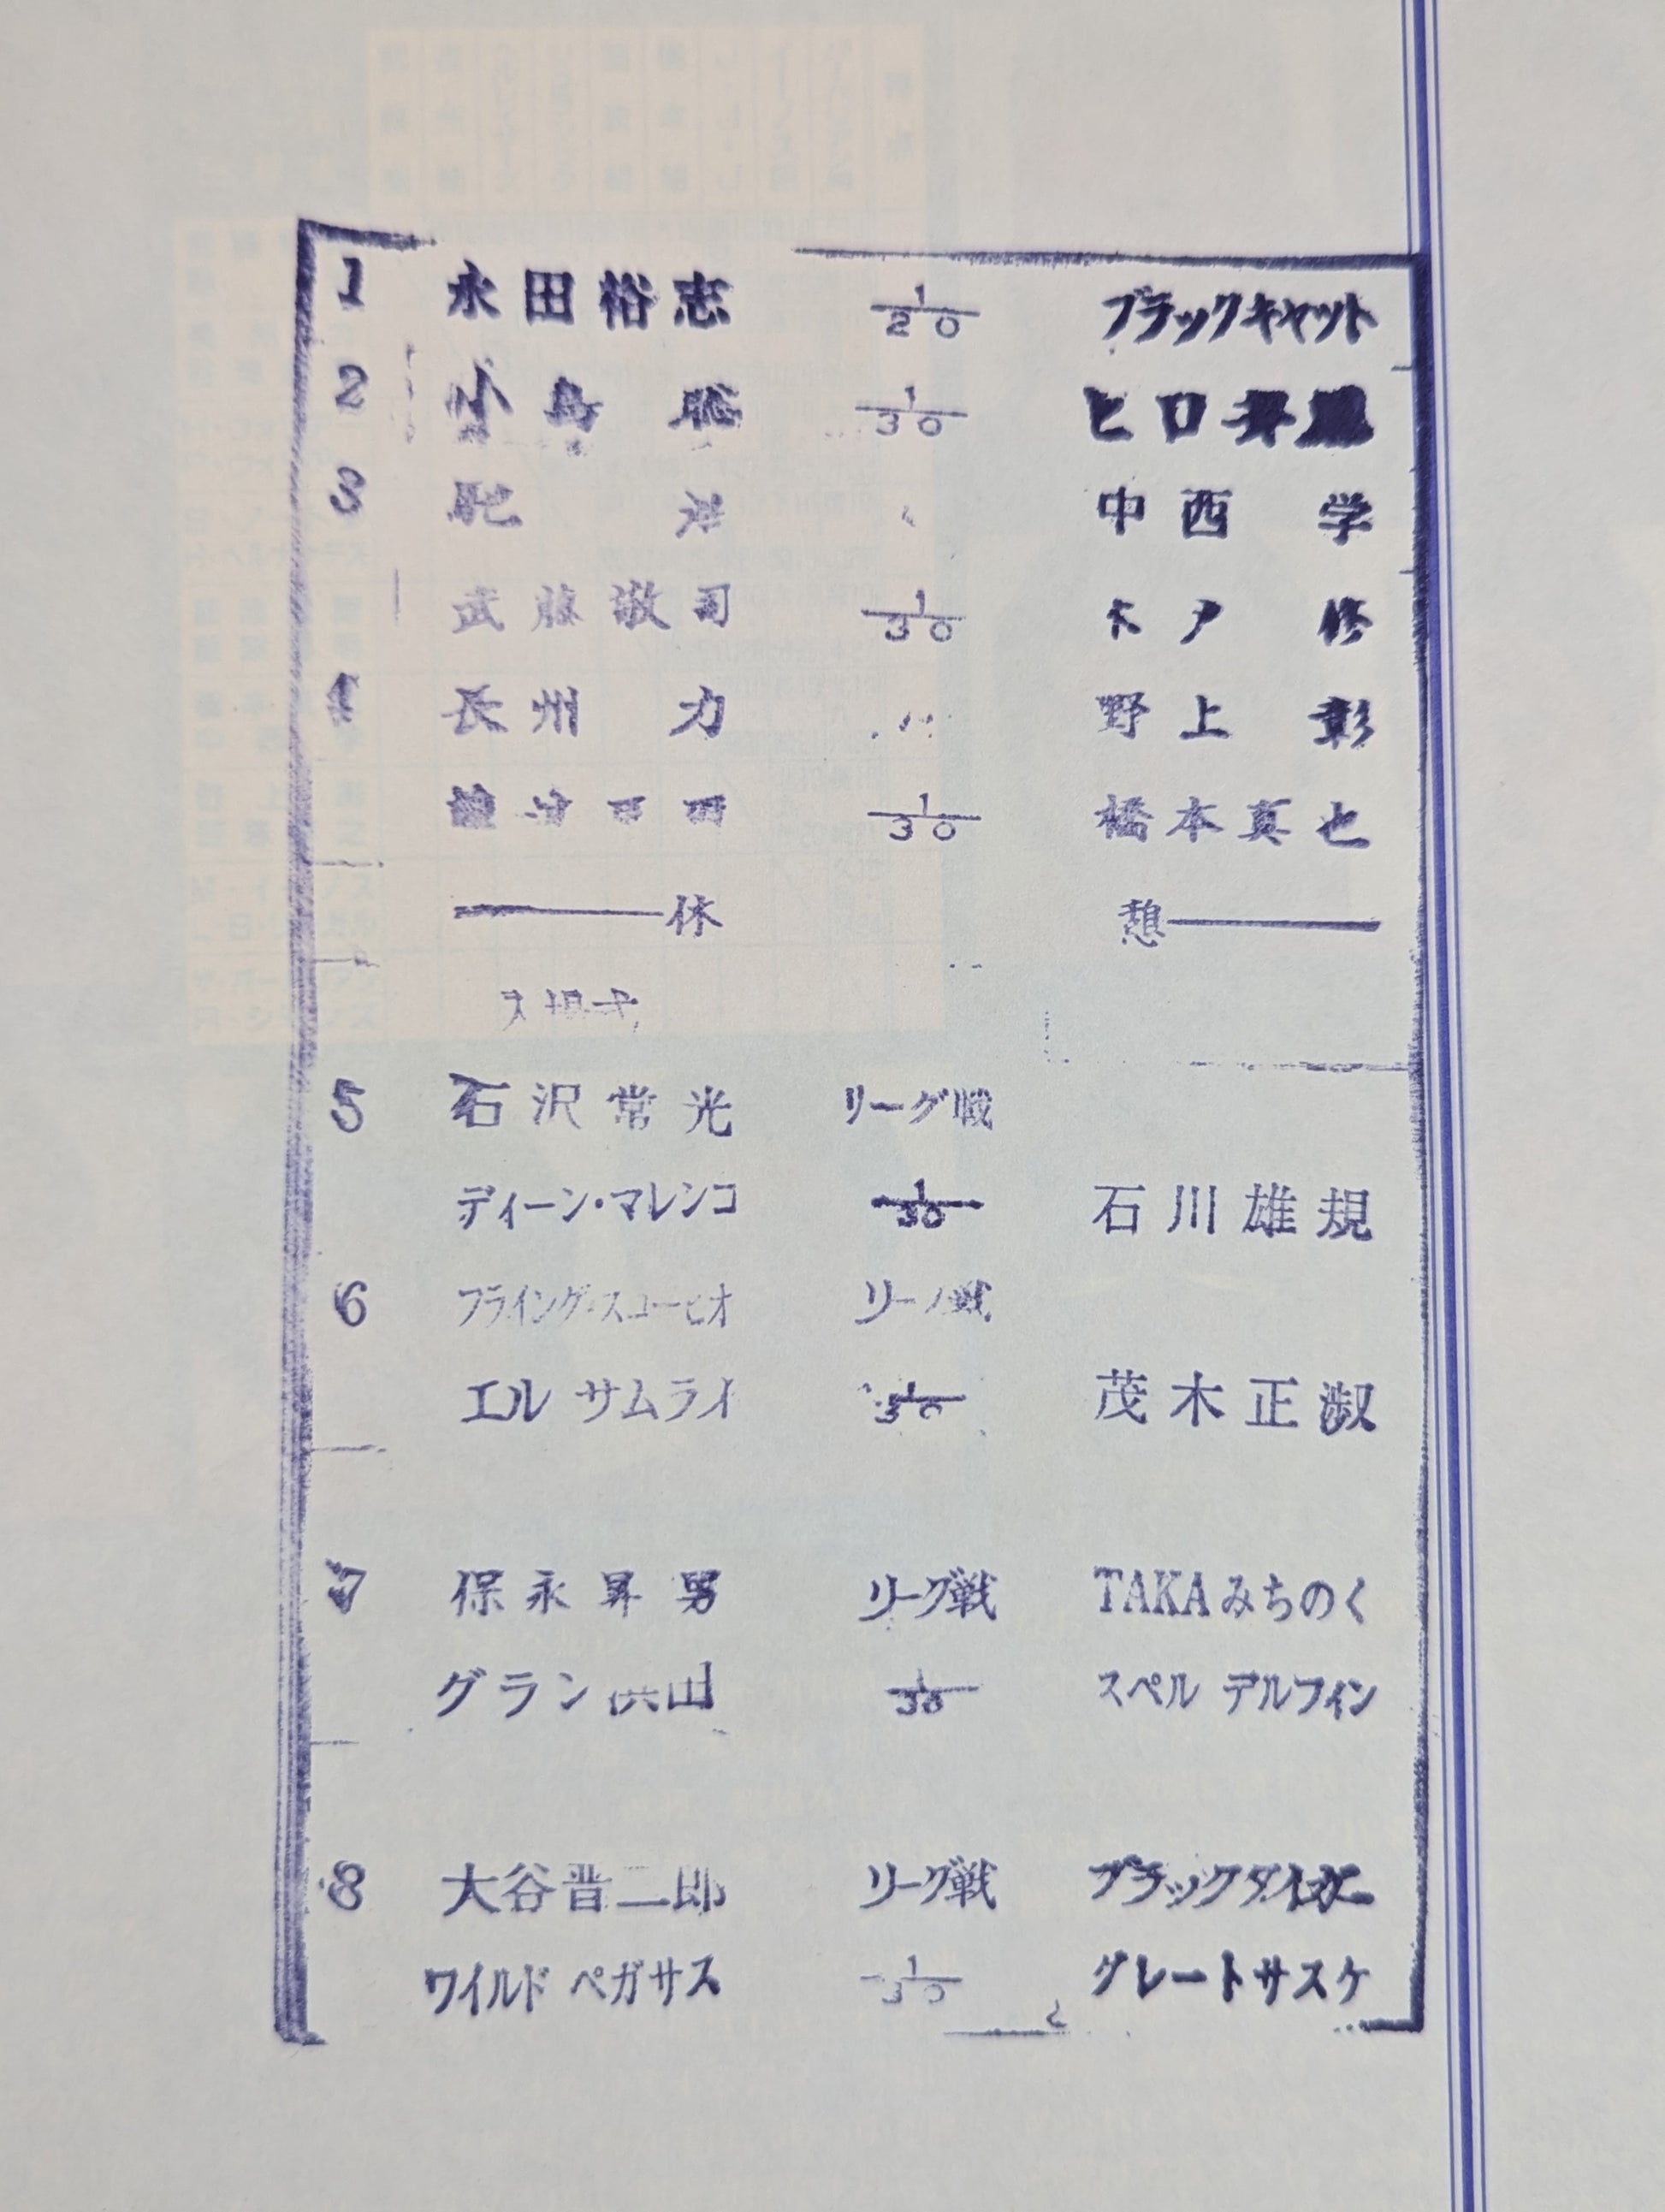 1 永田裕志 1/20 ブラックキャット
2 小島 聡 1/30 ヒロ斉藤
3 中西 学
武藤敬司 1/30 木戸 修
4 長州 力 野上 彰
1/30 橋本真也
休 憩
入場式
5 石沢常光 リーグ戦
ディーン・マレンコ 1/30 石川雄規
6 フライング・スコーピオ リーグ戦
エル サムライ 1/30 茂木正淑
7 保永昇男 リーグ戦 TAKAみちのく
グラン浜田 1/30 スペル デルフィン
8 大谷晋二郎 リーグ戦 ブラックタイガー
ワイルド ペガサス 1/30 グレートサスケ